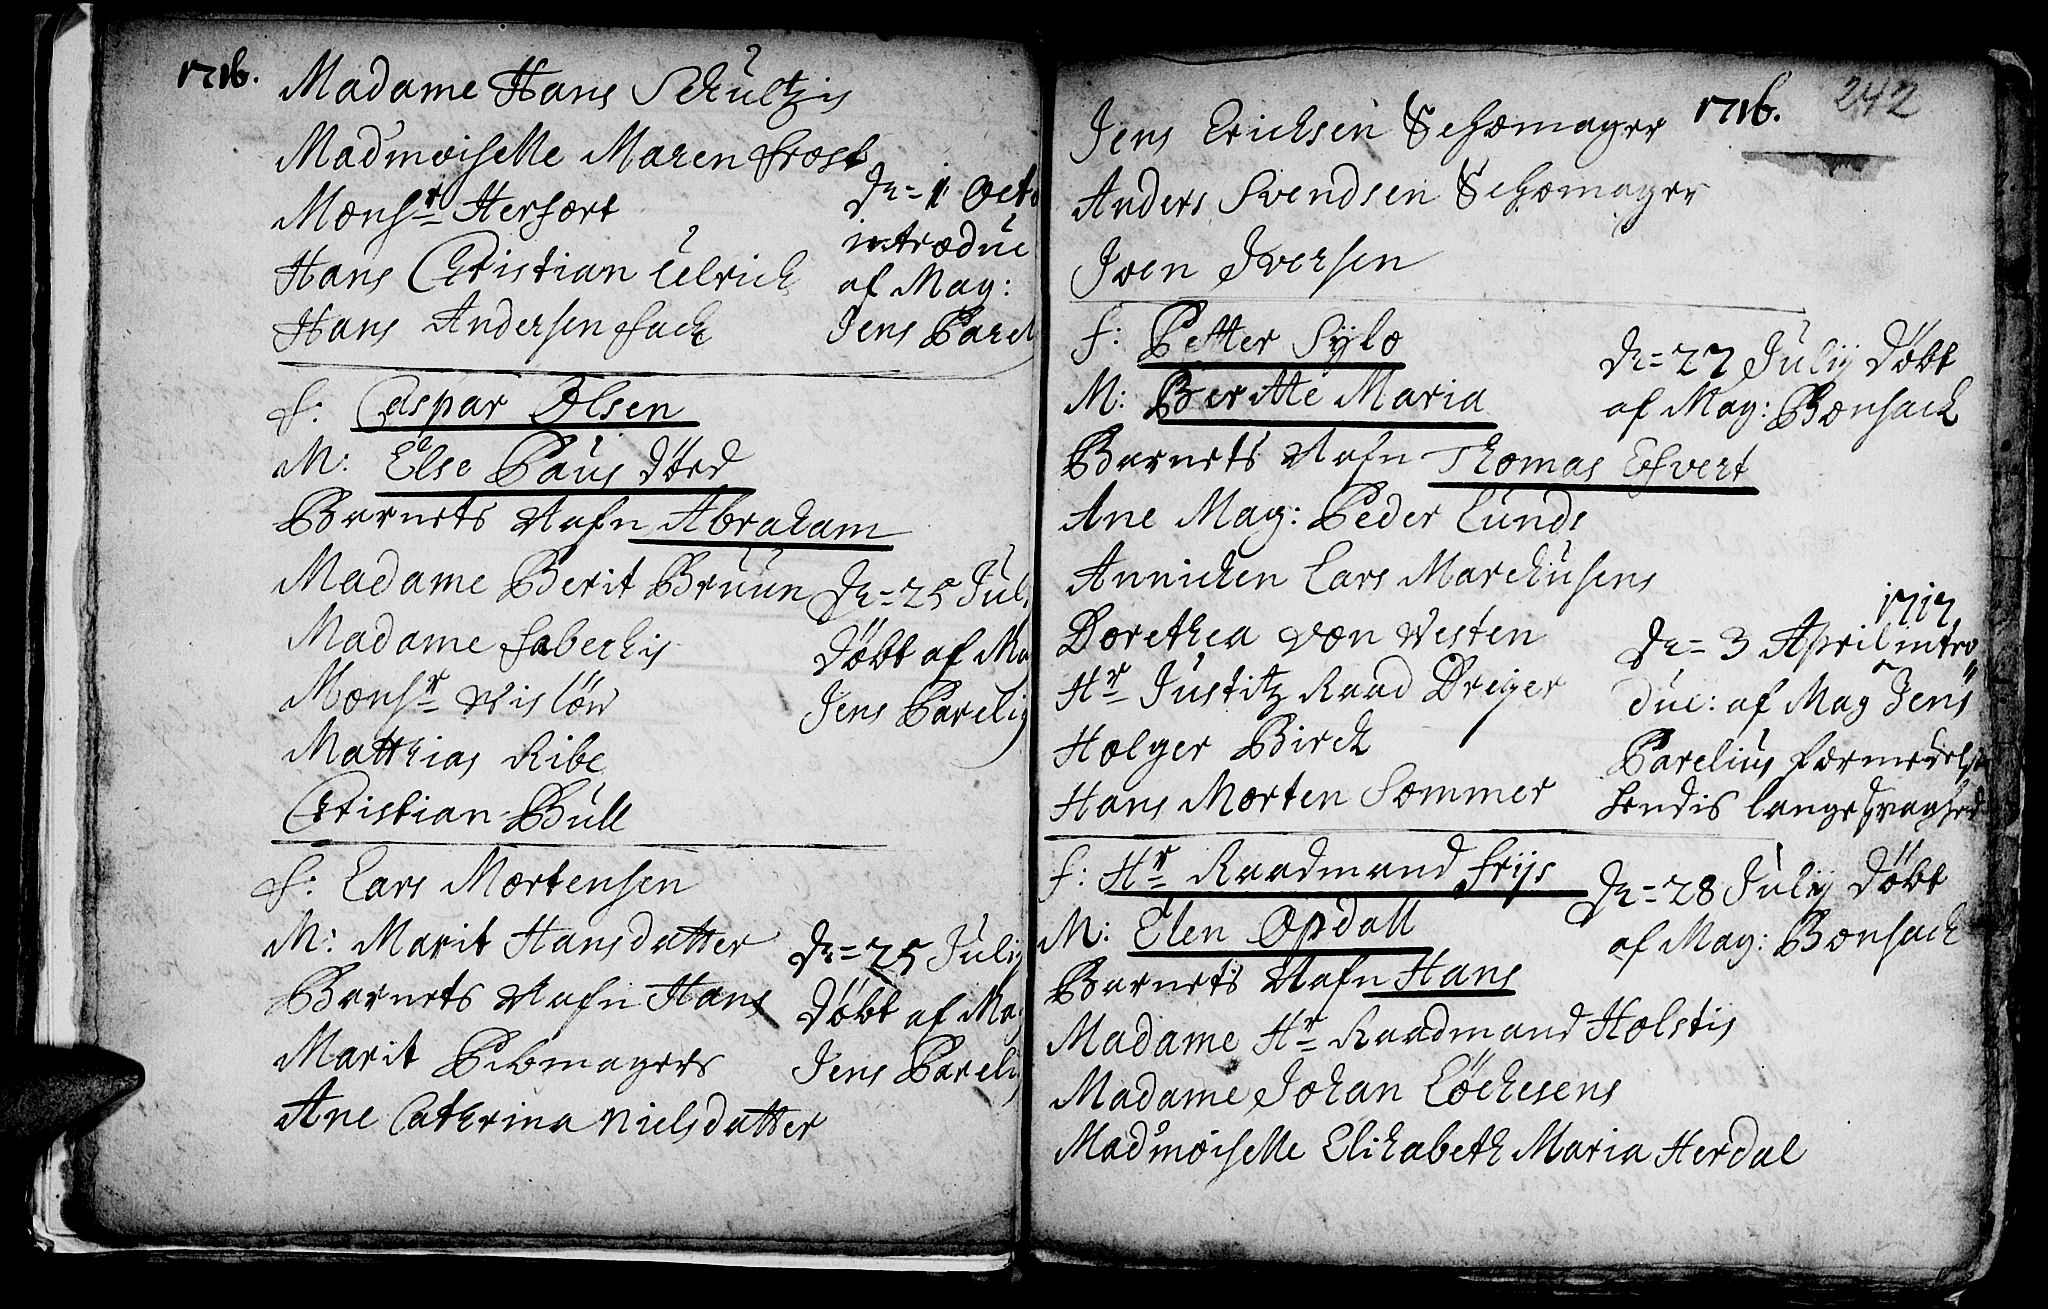 1716.
Madame Hans Schultzis
Madmoiselle Maren Frost
Monsr Herfort
Hans Christian Ulrich
Hans Andersen Fack
Dn = 1 Octo
introduc
af Mag:
Jens Parel
F: Caspar Olsen
M: Else Paus död
Barnets Nafn Abraham
Madame Berit Bruun
Madame Faberkis
Monsr Wislöw
Matthias Ribe
Christian Bull
Dn = 25 Juli
Döbt af Ma
Jens Parelig
F: Lars Mortensen
M: Marit Hansdatter
Barnets Nafn Hans
Marit Pibmagers
Ane Cathrina Nielsdatter
Dn = 25 Julij
Döbt af Mag
Jens Pareli
1716.
242
Jens Ericksen Schomager
Anders Svendsen Schomager
Iven Iversen
F: Petter Sylo
M: Beritte Maria
Barnets Nafn Thomas Efvert
Ane Mag: Peder Lunds
Annichen Lars Marckusens
Dorethea von Westen
Hr Justitz Raad Dreyer
Holger Birch
Hans Morten Sommer
Dn = 27 Julij Döbt
af Mag: Bonsach
1717
Dn = 3 April intro
duc: af Mag Jens
Parelius formedelst
hendis lange svaghed
F: Hr Raadmand Frijs
M: Elen Opdall
Barnets Nafn Hans
Madame Hr Raadmand Holstis
Madame Johan Löchesens
Madmoiselle Elisabeth Maria Herdal
Dn = 28 Julij Döbt
af Mag: Bonsach